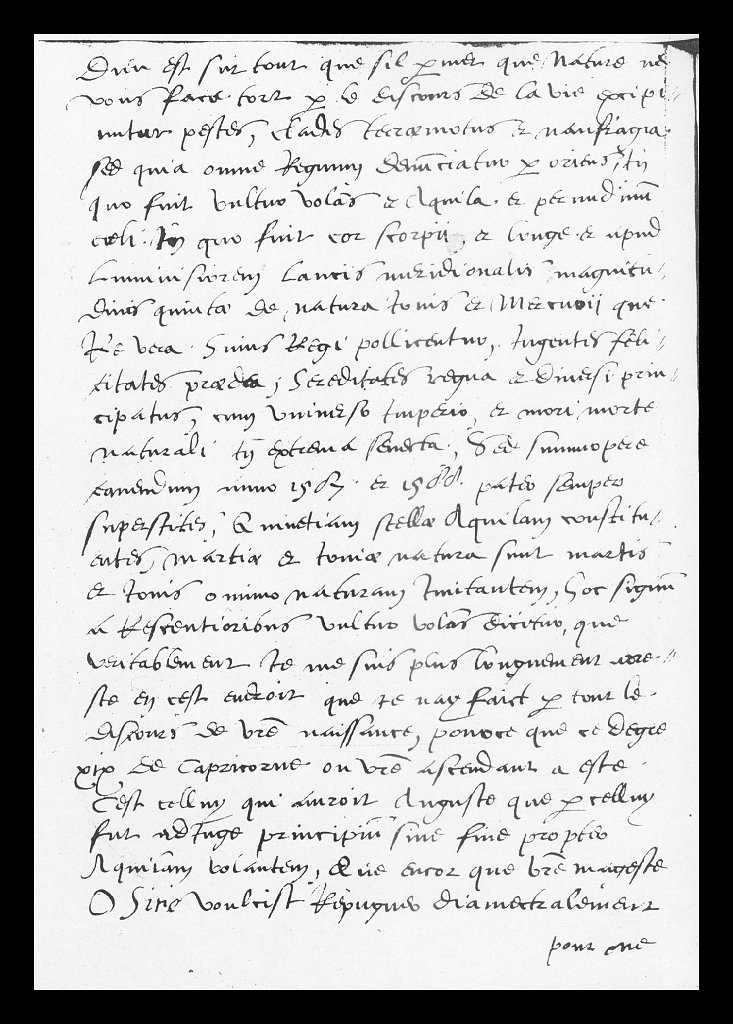 Dieu est sur tout que sil p̱met que Nature ne
vous face tort p̱ le discours de la vie excipi-
untur pestes, clades terræmotus et naufragia
sed quia omne Regnum denunciatur p̱ oriens, In
quo fuit vultur volās et Aquila. et per medium
cœli. In quo fuit cor scorpii, et longe et apud
Luminisiorem Lancis meridionalis magnitu-
dinis quintæ de natura Iouis et Mercurii que
Re vera huius Regi pollicentur, Ingentes feli-
citates prædea, hereditates regna et diuersi prin-
cipatus, cum vniuerso Imperio, et mori morte
naturali In extrema senecta, Sed summopere
cauendum anno 1567. et 1568. pater semper
superstites, Quinetiam stellæ Aquilam constitu-
entes, martiæ et Iouiæ natura sunt martis
et Iouis omnino naturam Imitantem, hoc signum
a Rescentioribus vultur volās dicitur, que
veritablement Ie me suis plus longuement arre-
ste en cest endroit que Ie nay faict p̱ tout le
discours de vr̄e naissance, pource que ce degre
xix de Capricorne ou vr̄e ascendant a este
C'est celluy qui auroit Auguste que p̱ celluy
fut adiuge principiū sine fine propter
Aquilam volantem, Que encor que vr̄e mageste
O Sire voulcist Repugner diametralement
pour me